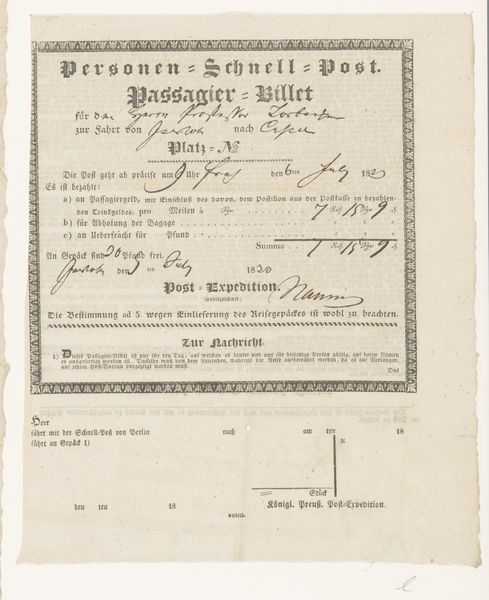 Personen = Schnell = Post.
Passagier = Billet
für den Herrn Professor
zur Fahrt von nach
Platz = No
Die Post geht ab präcise um 9 Uhr früh den 6ten July 18
Es ist bezahlt:
a) an Passagiergeld, mit Einschluß des davon, dem Postillon aus der Postkasse zu bezahlen-
den Trinkgeldes, pro Meilen à Sgr. 7 Rthlr. 15 Sgr. 9
b) für Abholung der Bagage
c) an Ueberfracht für Pfund
Summa 7 15 9
An Gepäck sind 30 Pfund frei.
den 5 ten July 18
Post = Expedition.
(unterzeichnet)
Die Bestimmung ad 5. wegen Einlieferung des Reisegepäckes ist wohl zu beachten.
Zur Nachricht.
1) Dieses Passagier-Billet ist nur für den Tag, auf welchen es lautet und nur für diejenige Person gültig, auf deren Namen
es ausgefertigt worden ist. Dasselbe muß von dem Reisenden, während der Reise aufbewahrt werden, da es auf Verlangen,
auf jedem Post-Bureau vorgezeigt werden muß.
Herr
fährt mit der Schnell-Post von Berlin nach am ten 18
führt an Gepäck 1)
Stück
den ten 18 Königl. Preuß. Post-Expedition.